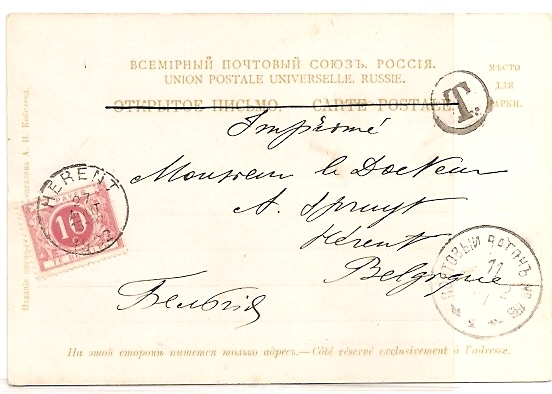 ВСЕМІРНЫЙ ПОЧТОВЫЙ СОЮЗЪ. РОССІЯ.
UNION POSTALE UNIVERSELLE. RUSSIE.
МѢСТО
ДЛЯ
МАРКИ.
ОТКРЫТОЕ ПИСЬМО. — CARTE POSTALE.
T.
Imprimé
Monsieur le Docteur
A. Spruyt
Hérent
Belgique
Бельгія
HERENT
10
ПОЧТОВЫЙ ВАГОНЪ
11
На этой сторонѣ пишется только адресъ.—Côté réservé exclusivement à l'adresse.